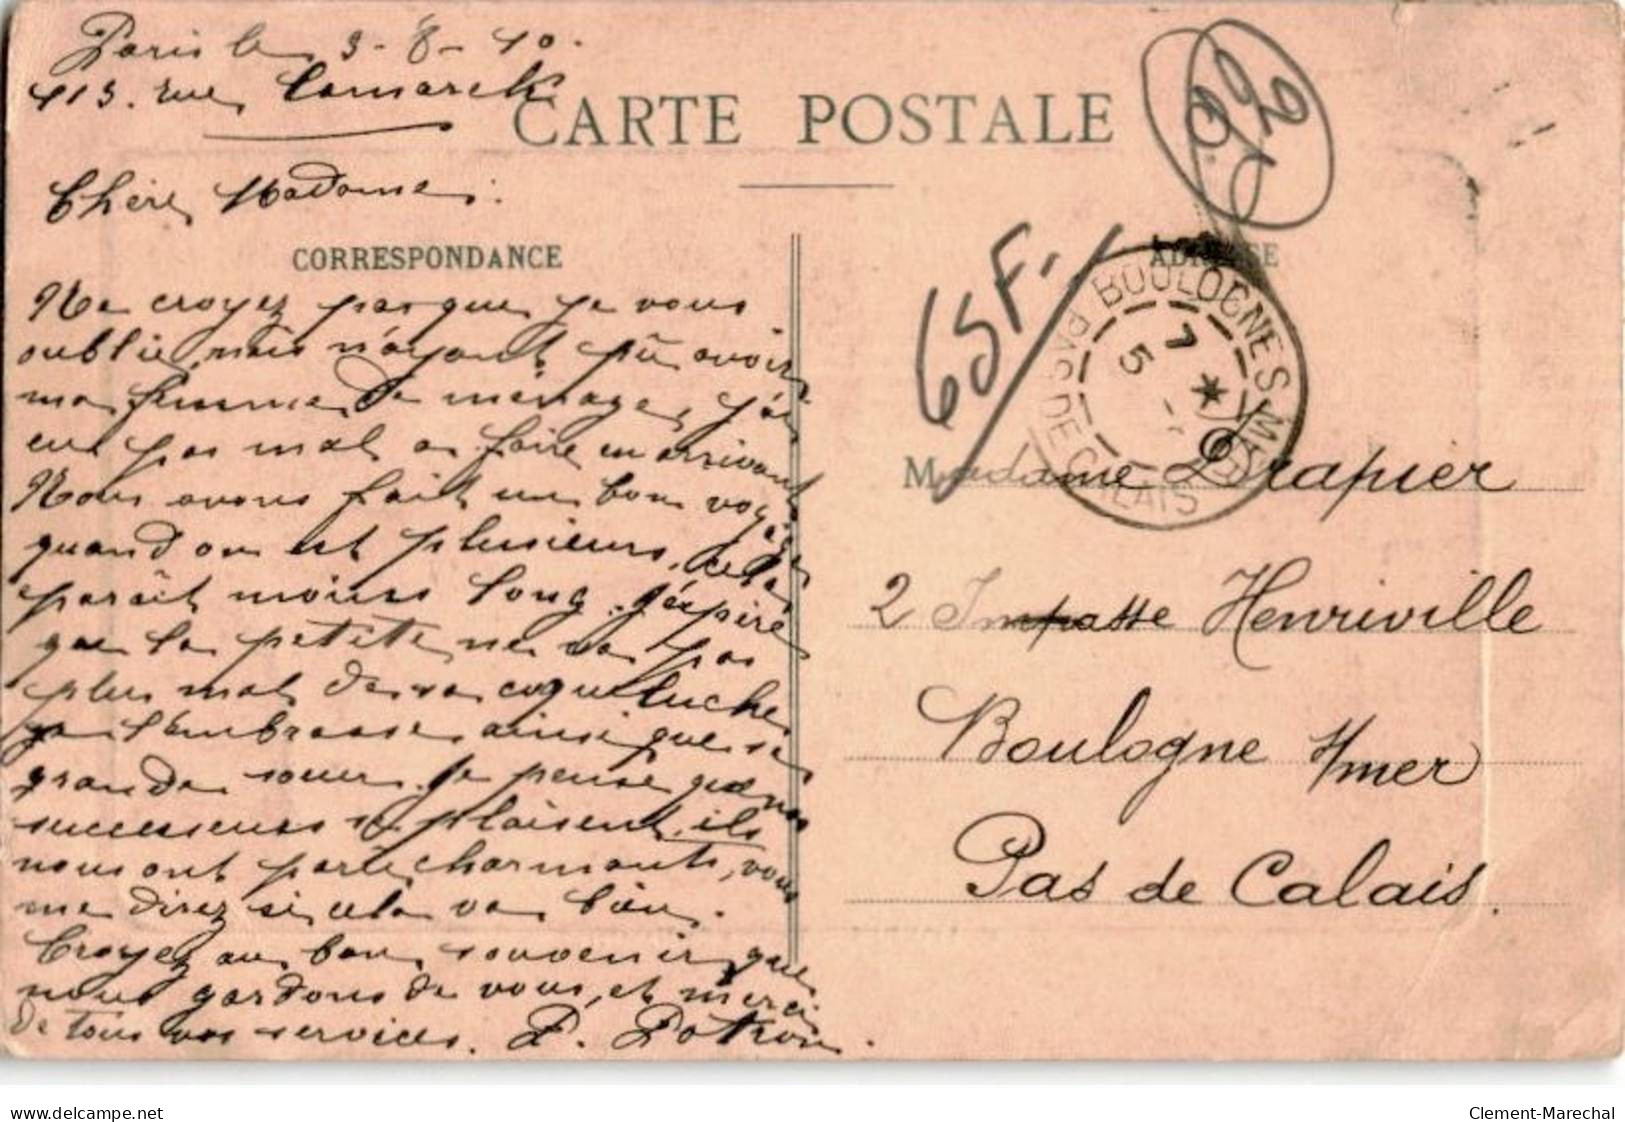 Paris le 3-8-10.
113. rue Lamarck
CARTE POSTALE
Chère Madame.
CORRESPONDANCE
Ne croyez pas que je vous
oublie, mais n'ayant pû avoir
ma femme de ménage, j'ai
eu pas mal à faire en arrivant
Nous avons fait un bon voyage
quand on est plusieurs, cela
paraît moins long. J'éspère
que la petite ne va pas
plus mal de sa coqueluche
je l'embrasse ainsi que sa
grande sœur. Je pense que nos
successeurs se plaisent. ils
nous ont paru charmants, vous
me direz si cela va bien.
Croyez au bon souvenir que
nous gardons de vous, et merci
de tous vos services. P. Potron.
65F.
BOULOGNE S MER
PAS DE CALAIS
7 *
5
Madame Drapier
2 Impasse Henriville
Boulogne s/mer
Pas de Calais.
delcampe.net
Clement-Marechal